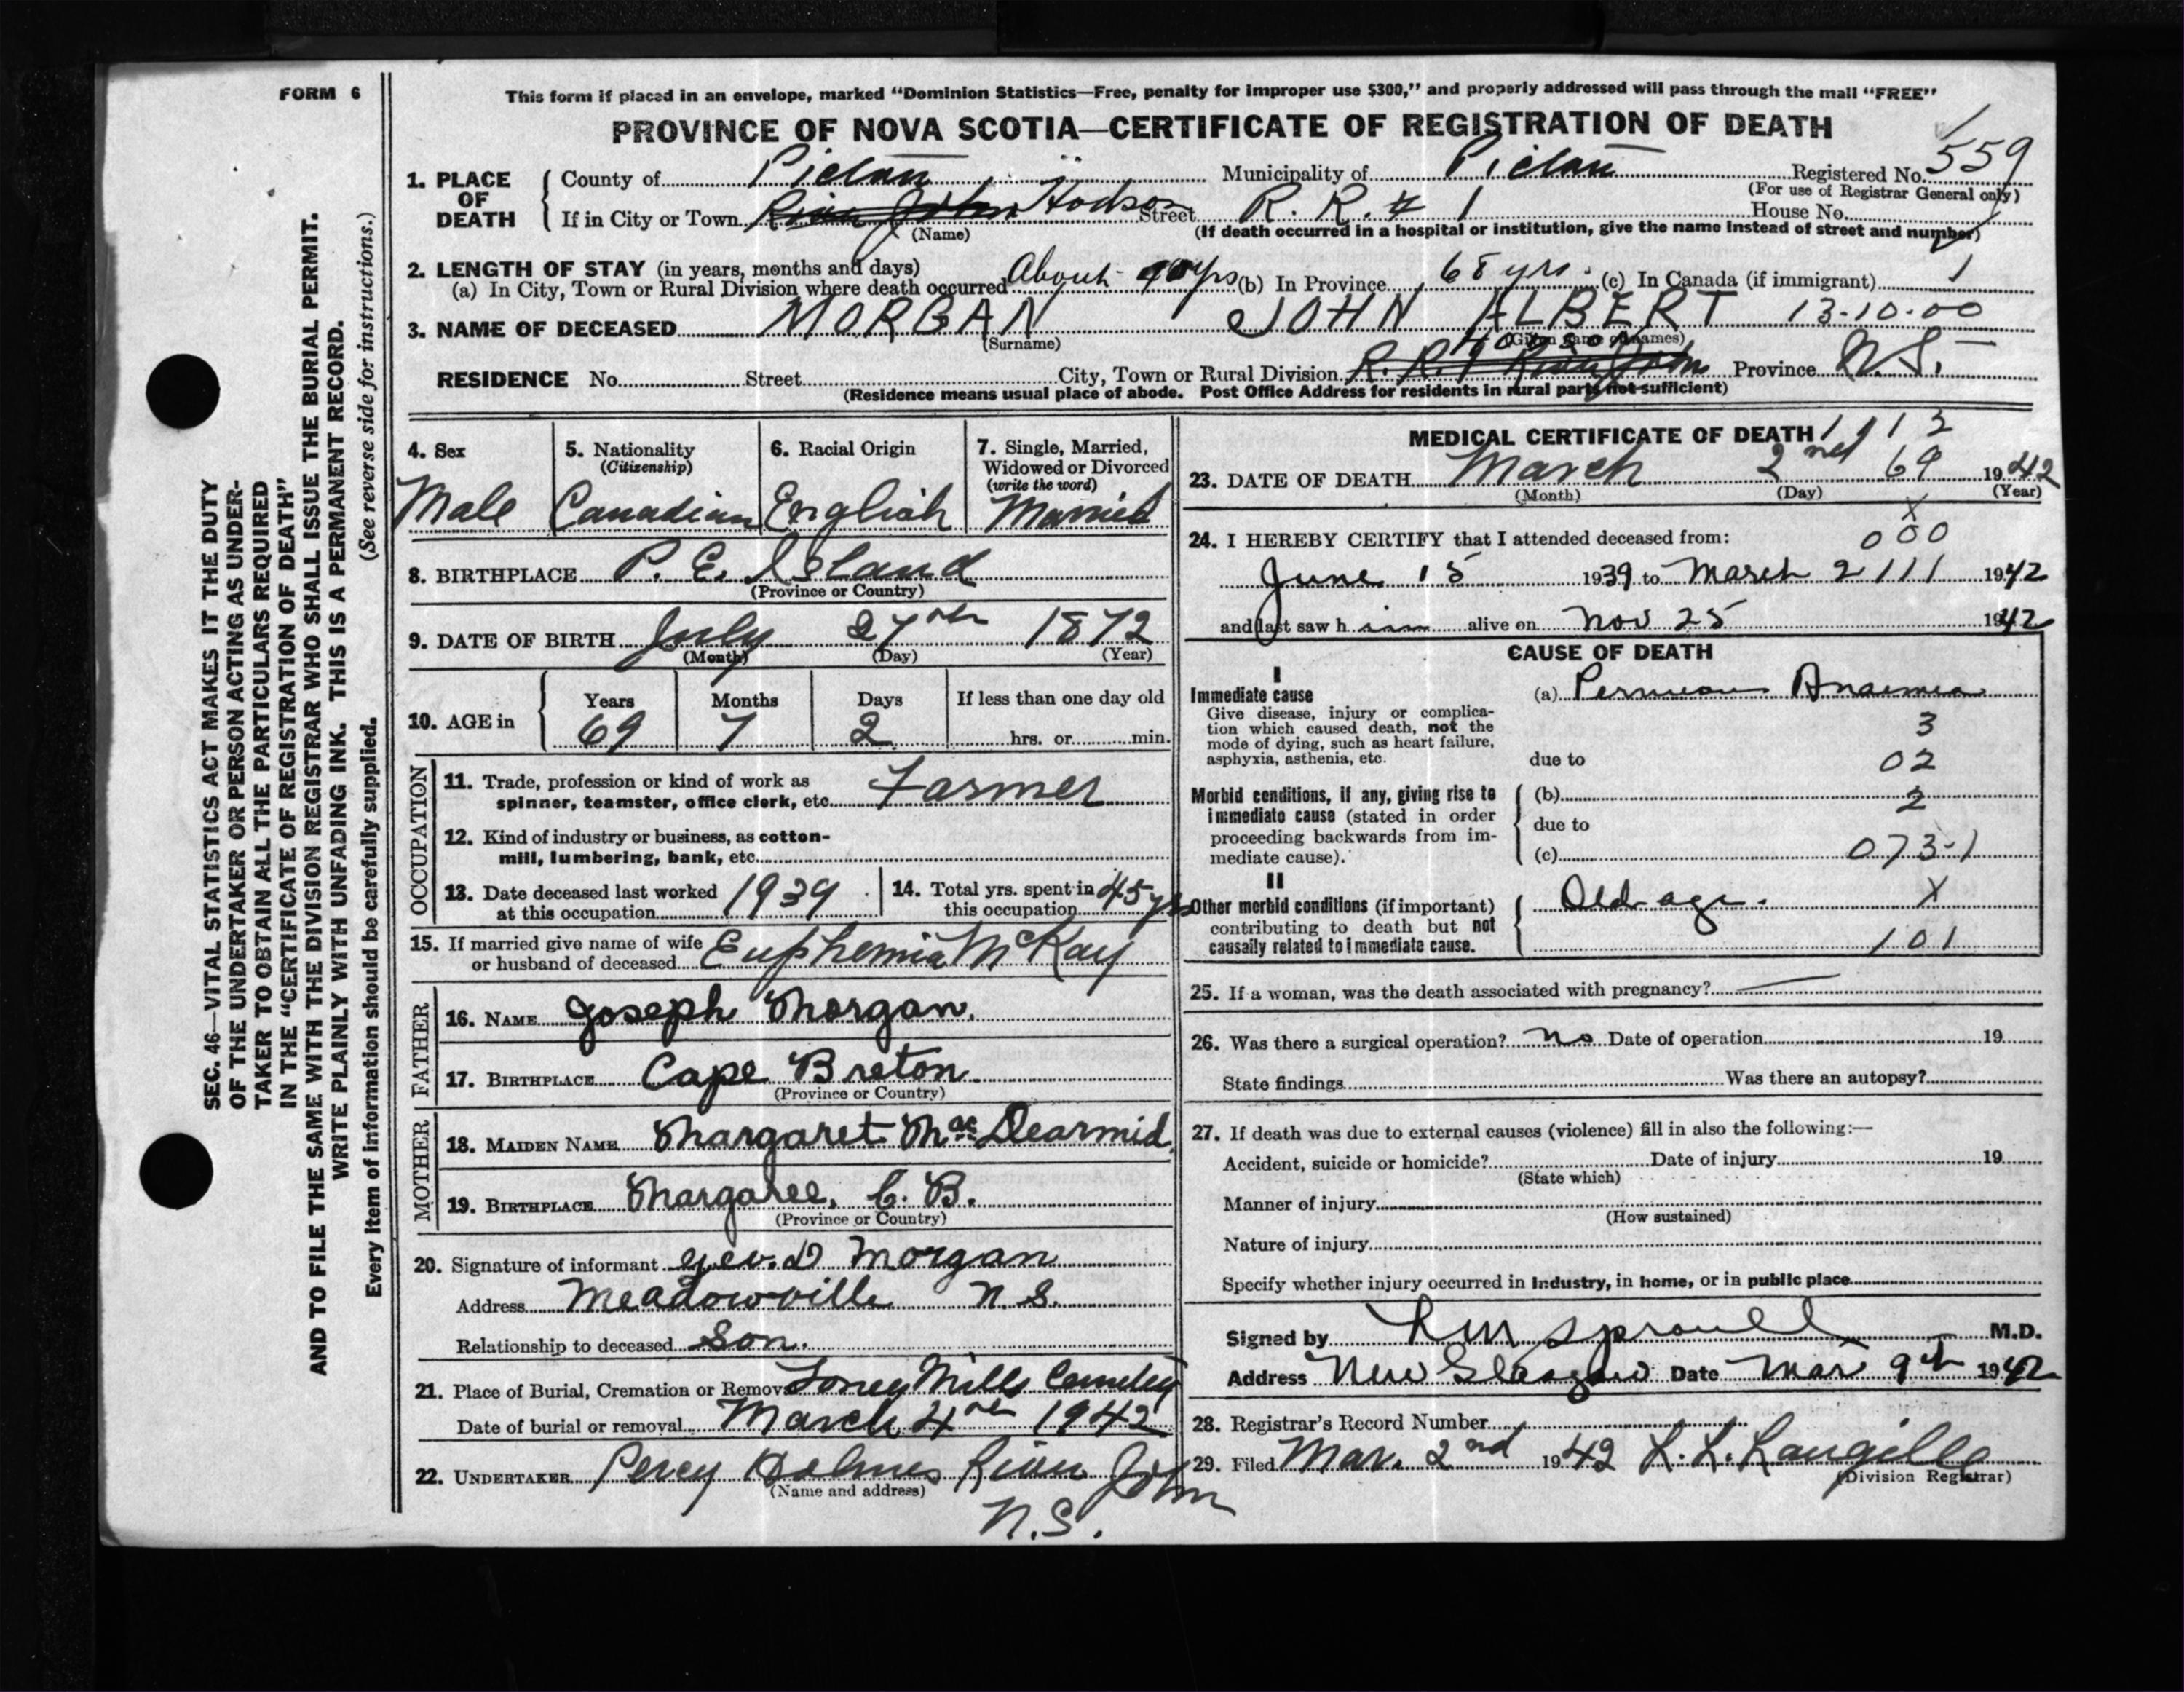 FORM 6
This form if placed in an envelope, marked "Dominion Statistics—Free, penalty for improper use $300," and properly addressed will pass through the mail "FREE"
PROVINCE OF NOVA SCOTIA—CERTIFICATE OF REGISTRATION OF DEATH
1. PLACE OF DEATH County of Pictou Municipality of Pictou Registered No. 559
(For use of Registrar General only)
If in City or Town River John Hodson Street R. R. # 1 House No.
(Name) (If death occurred in a hospital or institution, give the name instead of street and number)
2. LENGTH OF STAY (in years, months and days)
(a) In City, Town or Rural Division where death occurred About yrs (b) In Province 68 yrs. (c) In Canada (if immigrant) 1
3. NAME OF DECEASED MORGAN JOHN ALBERT 13-10-00
(Surname) (Given name or names)
RESIDENCE No. Street City, Town or Rural Division R. R. 1 River John Province N. S.
(Residence means usual place of abode. Post Office Address for residents in rural parts not sufficient)
4. Sex
Male
5. Nationality
(Citizenship)
Canadian
6. Racial Origin
English
7. Single, Married, Widowed or Divorced
(write the word)
Married
8. BIRTHPLACE P. E. Island
(Province or Country)
9. DATE OF BIRTH July 27th 1872
(Month) (Day) (Year)
10. AGE in Years Months Days If less than one day old
69 7 2 hrs. or min.
OCCUPATION
11. Trade, profession or kind of work as
spinner, teamster, office clerk, etc. Farmer
12. Kind of industry or business, as cotton-
mill, lumbering, bank, etc.
13. Date deceased last worked
at this occupation 1939
14. Total yrs. spent in
this occupation 45 yrs
15. If married give name of wife
or husband of deceased Euphemia McKay
FATHER
16. NAME Joseph Morgan.
17. BIRTHPLACE Cape Breton
(Province or Country)
MOTHER
18. MAIDEN NAME Margaret MacDearmid
19. BIRTHPLACE Margaree, C. B.
(Province or Country)
20. Signature of informant Geo. D Morgan
Address Meadowville N. S.
Relationship to deceased son.
21. Place of Burial, Cremation or Removal Mills Cemetery
Date of burial or removal March 4th 1942
22. UNDERTAKER Percy Holmes River John
(Name and address)
N.S.
MEDICAL CERTIFICATE OF DEATH 1 1 1 2
23. DATE OF DEATH March 2nd 69 1942
(Month) (Day) (Year)
x
24. I HEREBY CERTIFY that I attended deceased from: 000
June 15 1939 to March 2 111 1942
and last saw him alive on Nov 25 1942
CAUSE OF DEATH
I
Immediate cause
Give disease, injury or complica-
tion which caused death, not the
mode of dying, such as heart failure,
asphyxia, asthenia, etc.
(a) Pernicious Anaemia
3
due to 02
Morbid conditions, if any, giving rise to
immediate cause (stated in order
proceeding backwards from im-
mediate cause).
(b) 2
due to
(c) 073-1
II
Other morbid conditions (if important)
contributing to death but not
causally related to immediate cause.
Old age. X
101
25. If a woman, was the death associated with pregnancy? —
26. Was there a surgical operation? No Date of operation 19
State findings Was there an autopsy?
27. If death was due to external causes (violence) fill in also the following:—
Accident, suicide or homicide? Date of injury 19
(State which)
Manner of injury
(How sustained)
Nature of injury
Specify whether injury occurred in Industry, in home, or in public place
Signed by Sproull M.D.
Address New Glasgow Date Mar 9th 1942
28. Registrar's Record Number
29. Filed Mar. 2nd 1942 L. L. Langille
(Division Registrar)
SEC. 46—VITAL STATISTICS ACT MAKES IT THE DUTY
OF THE UNDERTAKER OR PERSON ACTING AS UNDER-
TAKER TO OBTAIN ALL THE PARTICULARS REQUIRED
IN THE "CERTIFICATE OF REGISTRATION OF DEATH"
AND TO FILE THE SAME WITH THE DIVISION REGISTRAR WHO SHALL ISSUE THE BURIAL PERMIT.
WRITE PLAINLY WITH UNFADING INK. THIS IS A PERMANENT RECORD.
Every item of information should be carefully supplied. (See reverse side for instructions.)